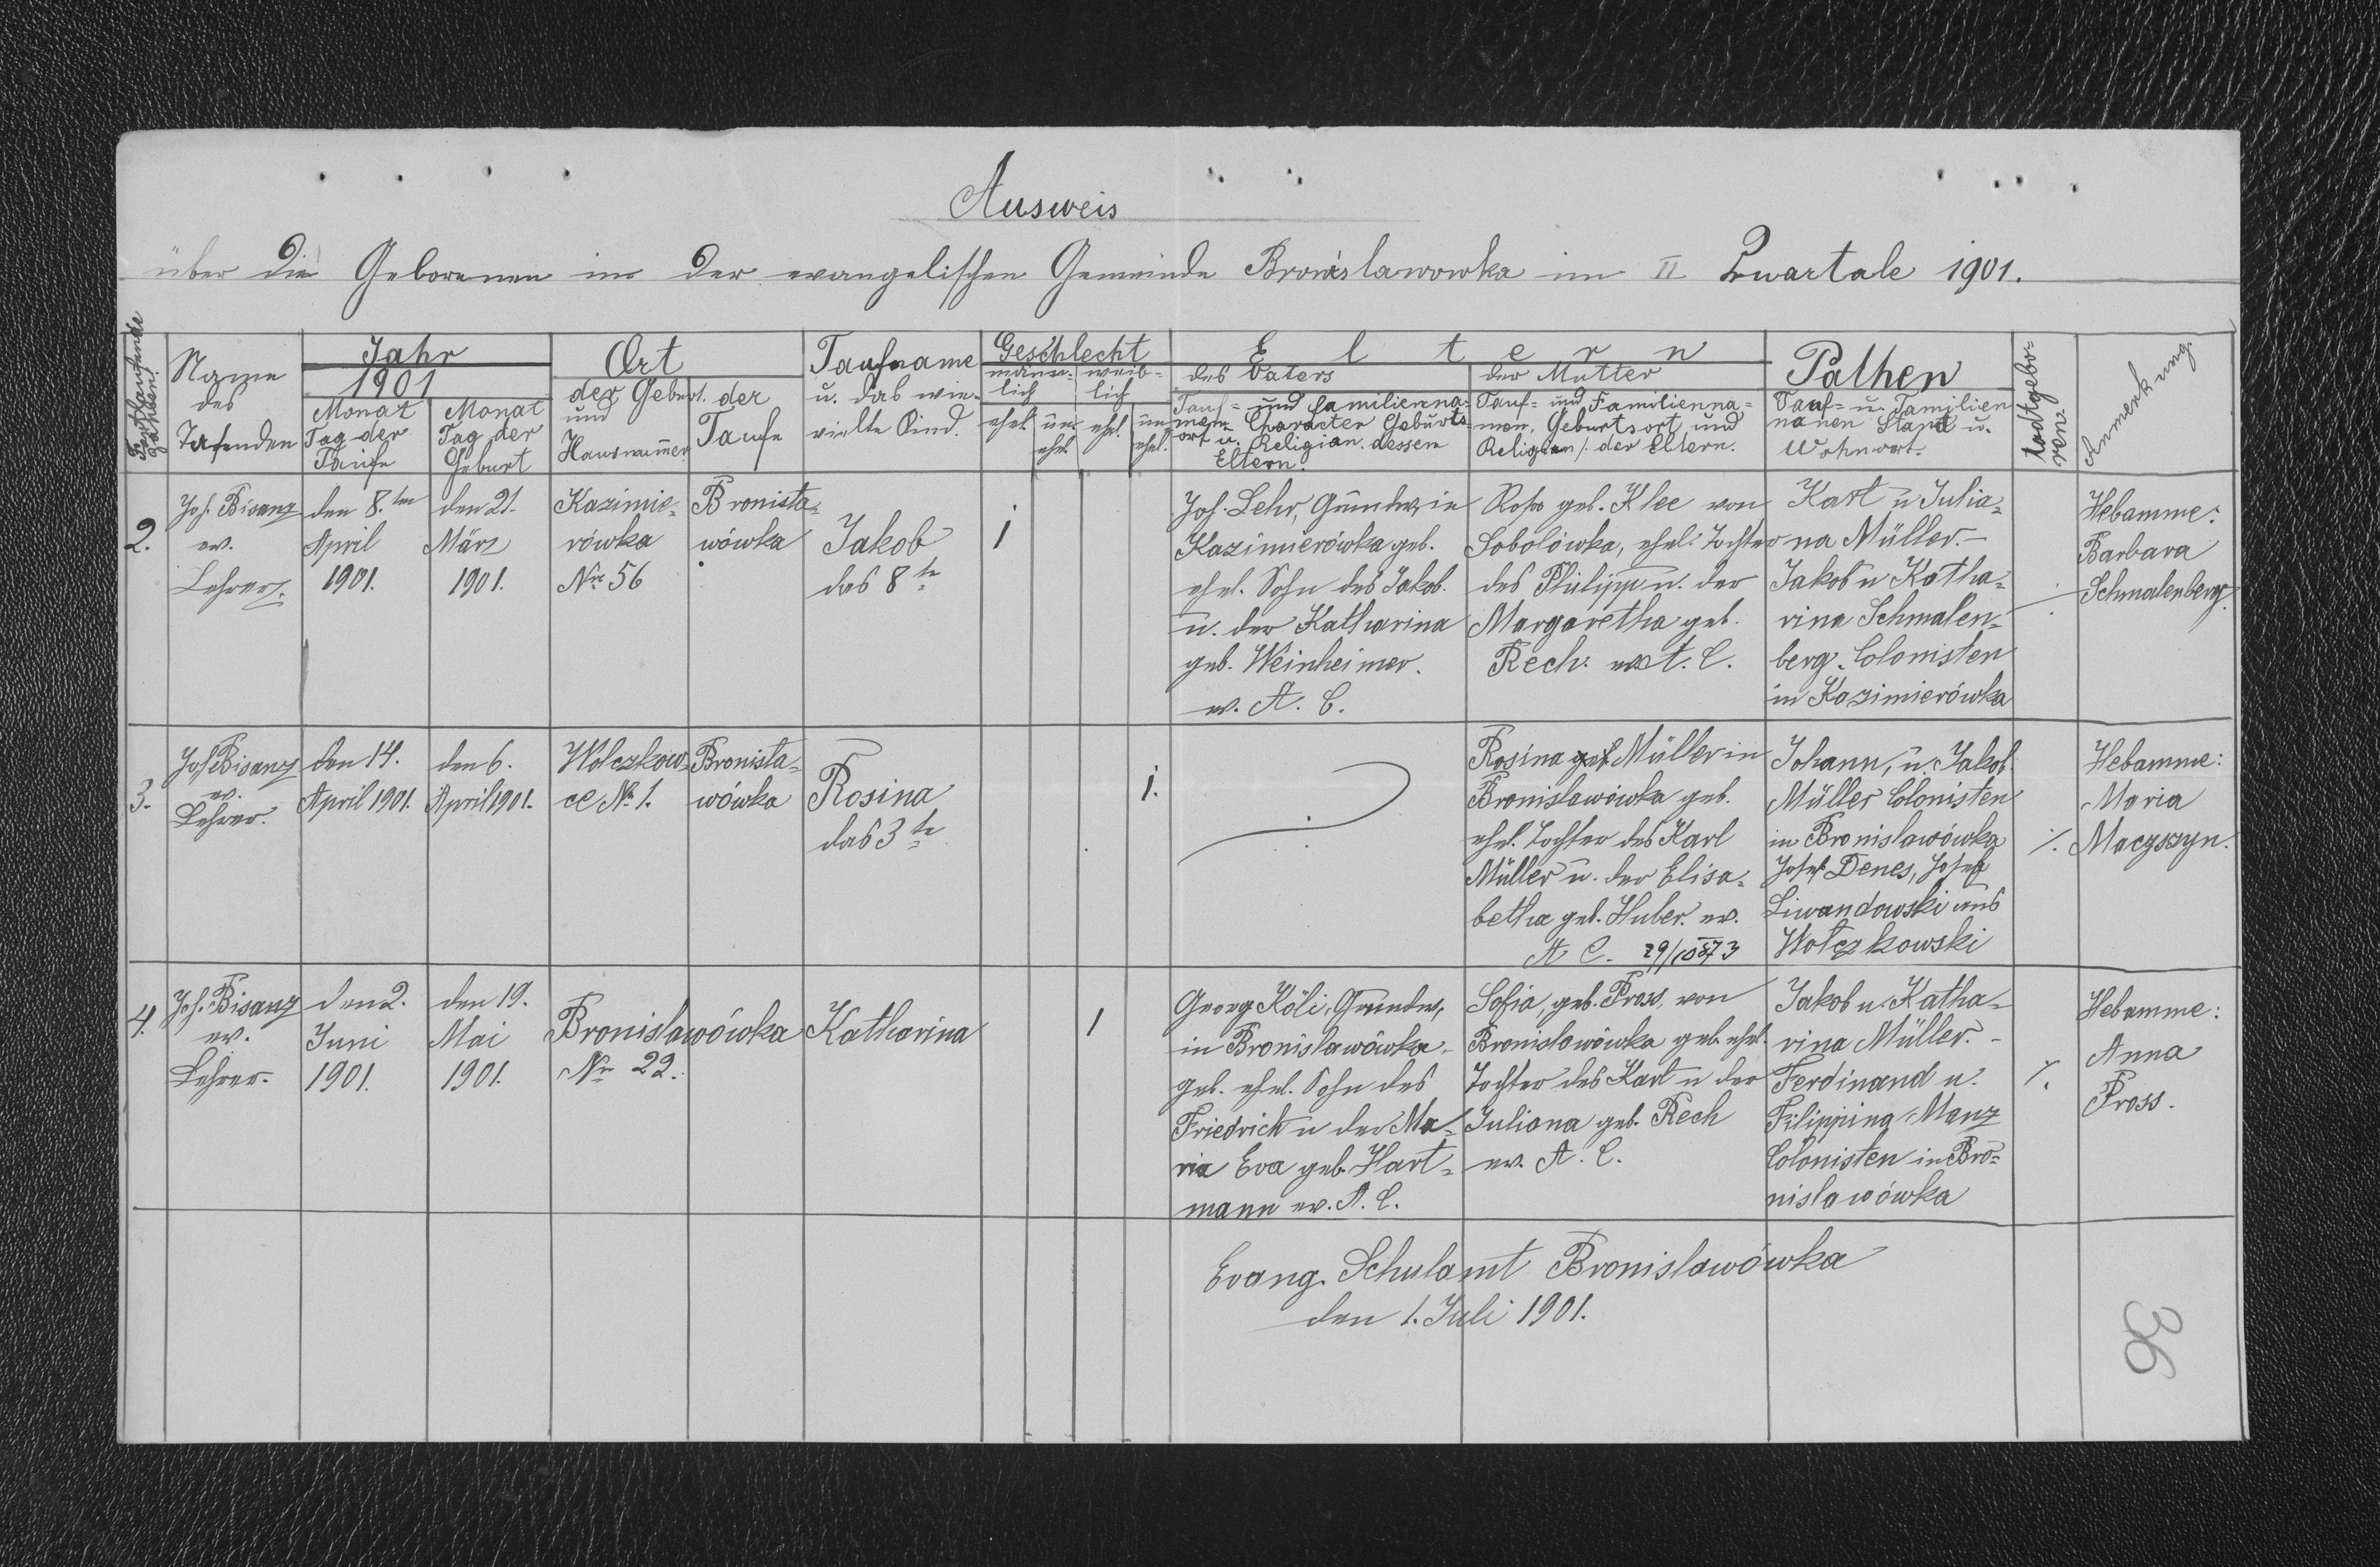 Ausweis
über die Geborenen in der evangelischen Gemeinde Bronislawowka im II Quartale 1901.
Fortlaufende Zahlen.
Name des Taufenden
Jahr
1901
Monat Tag der Taufe
Monat Tag der Geburt
Ort
der Geburt und Hausnummer
der Taufe
Taufname u. das wie-
vielte Kind.
Geschlecht
männ-
lich
weib-
lich
ehel.
un-
ehel.
ehel.
un-
ehel.
Eltern
des Vaters
Tauf- und Familienna-
men Character Geburts-
ort u. Religion dessen
Eltern.
der Mutter
Tauf- und Familienna-
men, Geburtsort und
Religion /: der Eltern.
Pathen
Tauf- u. Familien
namen Stand u.
Wohnort.
todtgebor-
ren.
Anmerkung.
2.
Joh. Bisanz
ev.
Lehrer.
den 8.ten
April
1901.
den 21.
März
1901.
Kazimie-
rówka
Nr. 56
Bronisła-
wówka
Jakob
das 8te
1
Joh. Lehr, Grundw. in
Kazimierówka geb.
ehel. Sohn des Jakob.
u. der Katharina
geb. Weinheimer.
ev. A. C.
Rosa geb. Klee von
Sobolówka, ehel. Tochter
des Philipp u. der
Margaretha geb.
Rech. ev A. C.
Karl u Julia-
na Müller.-
Jakob u Katha-
rina Schmalen-
berg. Colonisten
in Kazimierówka
Hebamme:
Barbara
Schmalenberg.
3.
Joh Bisanz
ev.
Lehrer.
den 14.
April 1901.
den 6.
April 1901.
Wołczkow-
ce Nr. 1.
Bronisła-
wówka
Rosina
das 3te
1.
Rosina geb. Müller in
Bronislawówka geb.
ehel. Tochter des Karl
Müller u. der Elisa-
betha geb. Huber. ev.
A C. 29/10 873
Johann, u. Jakob
Müller Colonisten
in Bronislawówka
Josef Denes, Josef
Liwandowski aus
Wołczkowski
/.
Hebamme:
Maria
Maczszyn.
4.
Joh. Bisanz
ev.
Lehrer.
den 2.
Juni
1901.
den 19.
Mai
1901.
Bronislawówka
Nr. 22.
Katharina
1
Georg Köli, Grundw,
in Bronislawówka.
geb. ehel. Sohn des
Friedrich u der Ma-
ria Eva geb. Hart-
mann ev. A. C.
Sofia, geb. Pross, von
Bronislawówka geb. ehel.
Tochter des Karl u der
Juliana geb. Rech
ev. A. C.
Jakob u. Katha-
rina Müller.-
Ferdinand u.
Filippina Manz
Colonisten in Bro-
nislawówka
/.
Hebamme:
Anna
Pross.
Evang. Schulamt Bronislawówka
den 1. Juli 1901.
36